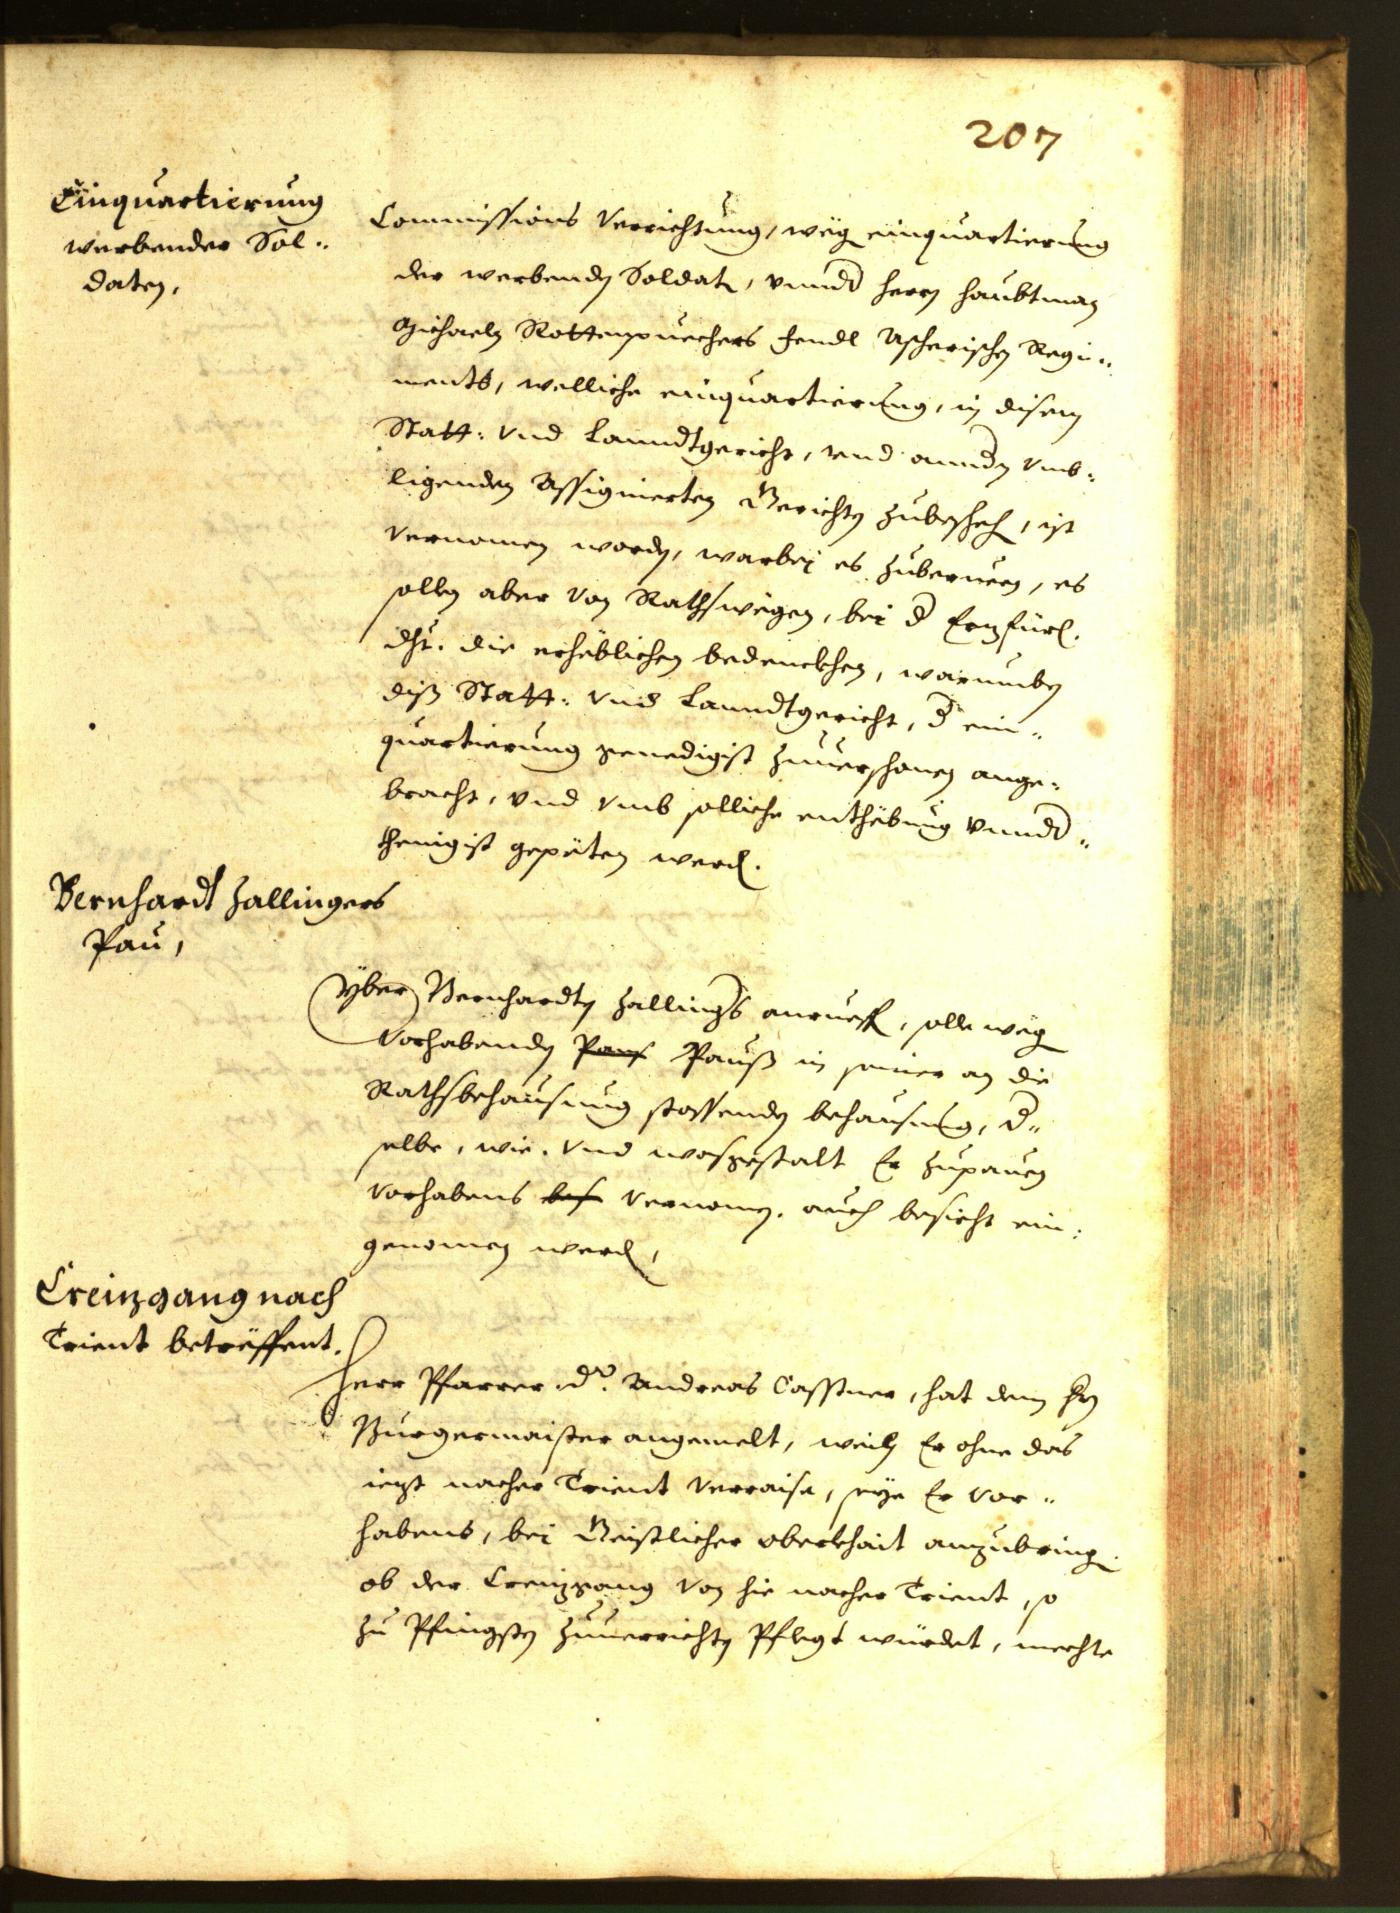 207
Einquartierung
werbender Sol¨
daten,
Commissions Verrichtung, weg einquartierung
der werbenden Soldaten, vnnd herrn Haubtman
Michaeln Rottenpuechers fendl Ascherischen Regi¨
ments, welliche einquartierung, in disem
Statt: vnd Lanndtgericht, vnd anndern vmb¨
ligenden Assignierten Gerichten zubescheh, ist
vernomen worden, warbei es zuberuen, es
sollen aber von Rathswegen, bei d Erzfürl.
dht. die erheblichen bedenckhen, warumben
diß Statt: vnd Lanndtgericht, d ein¨
quartierung genedigist zuuerschonen ange¨
bracht, vnd vmb solliche enthebung vnnd¨
thenigist gepëten werd.
Bernhardt Zallingers
Pau,
Yber Bernhardten Zallingers anrueff, solle weg
vorhabenden Pauß in seiner an die
Rathsbehausung stossenden behausung, d¨
selbe, wie. vnd wasgestalt Er zupauen
vorhabens vernomen, auch besicht ein¨
genomen werd,
Creizgang nach
Trient betreffent.
Herr Pfarrer dr. Andreas Casstner, hat dem hn
Burgermaister angemelt, weiln Er ohne das
iezt nacher Trient verraise, seye Er vor¨
habens, bei Geistlicher oberkhait anzubring
ob der Creizgang von hie nacher Trient, so
zu Pfingsten zuuerrichten Pflegt würdet, mechte